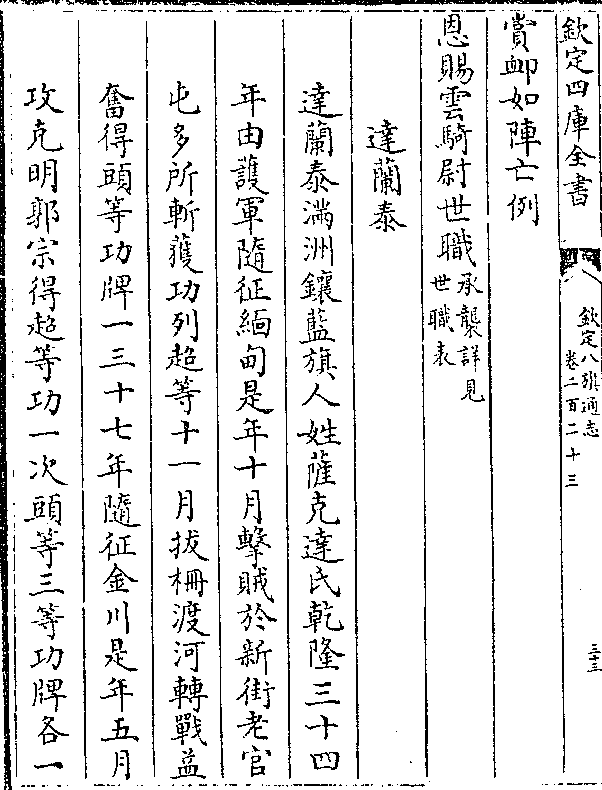 欽定四庫全書
欽定八旗通志
卷二百二十三
三十三
賞䘏如陣亡例
恩賜雲騎尉世職承襲詳見
世職表
達蘭泰
達蘭泰滿洲鑲藍旗人姓薩克達氏乾隆三十四
年由護軍隨征緬甸是年十月擊賊於新街老官
屯多所斬獲功列超等十一月拔柵渡河轉戰益
奮得頭等功牌一三十七年隨征金川是年五月
攻克明郭宗得超等功一次頭等三等功牌各一